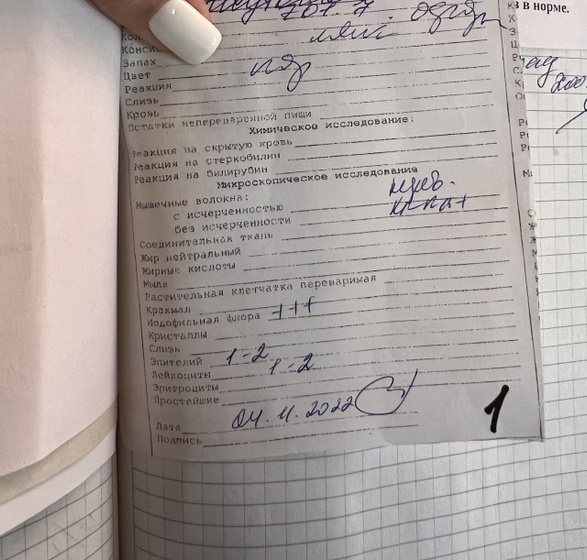 з в норме.
Консис
Запах
Цвет
Реакция
Слизь
Кровь
Остатки непереваренной пищи
Химическое исследование:
Реакция на скрытую кровь
Реакция на стеркобилин
Реакция на билирубин
Микроскопическое исследование
Мышечные волокна:
с исчерченностью
без исчерченности
Соединительная ткань
Жир нейтральный
Жирные кислоты
Мыла
Растительная клетчатка переваримая
Крахмал
Иодофильная флора +++
Кристаллы
Слизь
Эпителий 1-2
Лейкоциты 1-2
Эритроциты
Простейшие
Дата 04.11.2022
Подпись
1